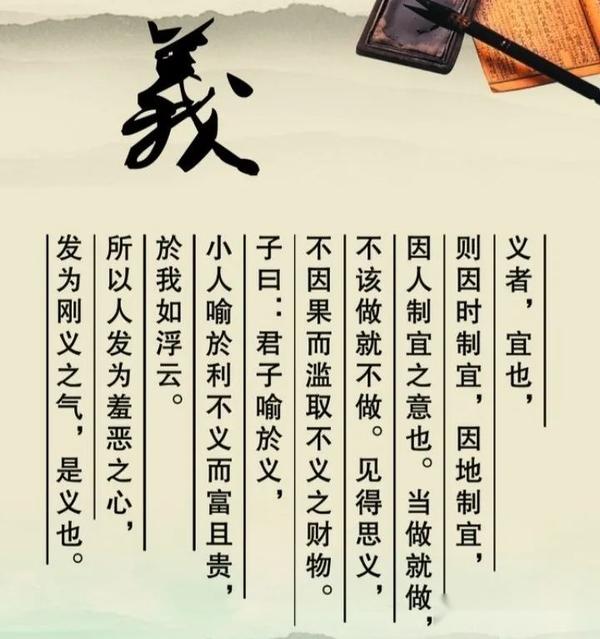 義
义者，宜也，
则因时制宜，因地制宜，
因人制宜之意也。当做就做，
不该做就不做。见得思义，
不因果而滥取不义之财物。
子曰：君子喻於义，
小人喻於利不义而富且贵，
於我如浮云。
所以人发为羞恶之心，
发为刚义之气，是义也。